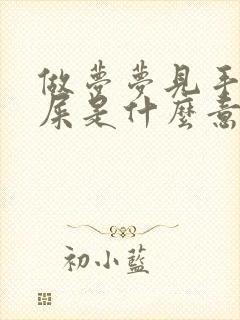 做夢夢見手
屎是什麼意
初小藍